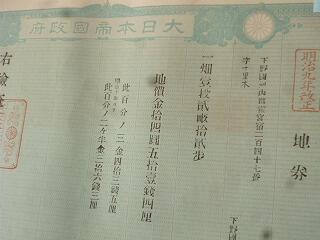 大日本帝國政府
明治九年改正
地券
下野國
字十里木
一畑壹段貳畝拾貳步
地價金拾四圓五拾壹錢四厘
此百分ノ三金四拾三錢五厘
明治十年ヨリ
此百分ノ二ヶ半金三拾六錢三厘
右檢査
下野國